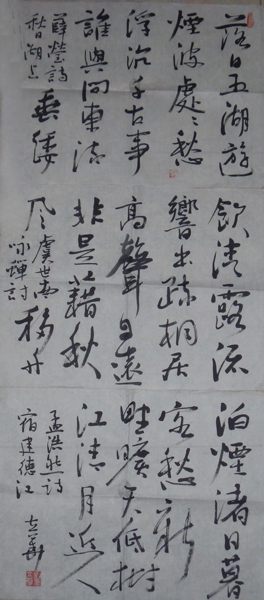 落日五湖遊
煙波處々愁
浮沉千古事
誰與問東流
薛瑩詩
秋湖上
垂緌
飲清露流
響出疏桐居
高聲自遠
非是藉秋
風
虞世南
詠蟬詩
移舟
泊煙渚日暮
客愁新
野曠天低樹
江清月近人
孟浩然詩
宿建德江